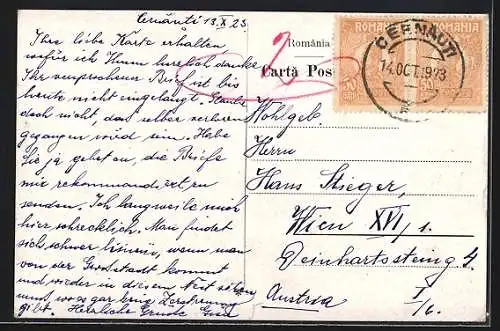 Cernăuti 13.X 23
Ihre liebe Karte erhalten
wofür ich Ihnen herzlich danke
Ihr versprochener Brief ist bis
heute nicht eingelangt. Glaube
doch nicht, das selber verloren
gegangen sein. Habe
Sie ja gebeten, die Briefe
mir rekommandiert zu
senden. Ich langweile mich
hier schrecklich. Man findet
sich schwer hinein, wenn man
von der Grosstadt kommt
und wieder in diesem Nest
und wo es gar keine Zerstreuung
gibt. Herzliche Grüsse
România
Cartă Pos
ROMANIA
ROMANIA
50
50
CERNĂUȚI
14.OCT.1923
Wohlgeb.
Herrn
Hans Stieger,
Wien XVI/1.
Deinhartssteing 4.
I/6.
Austria